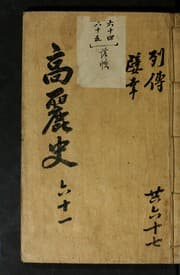 列傳
嬖幸
共六十七
六十四
六十五
落帙
高麗史
六十一